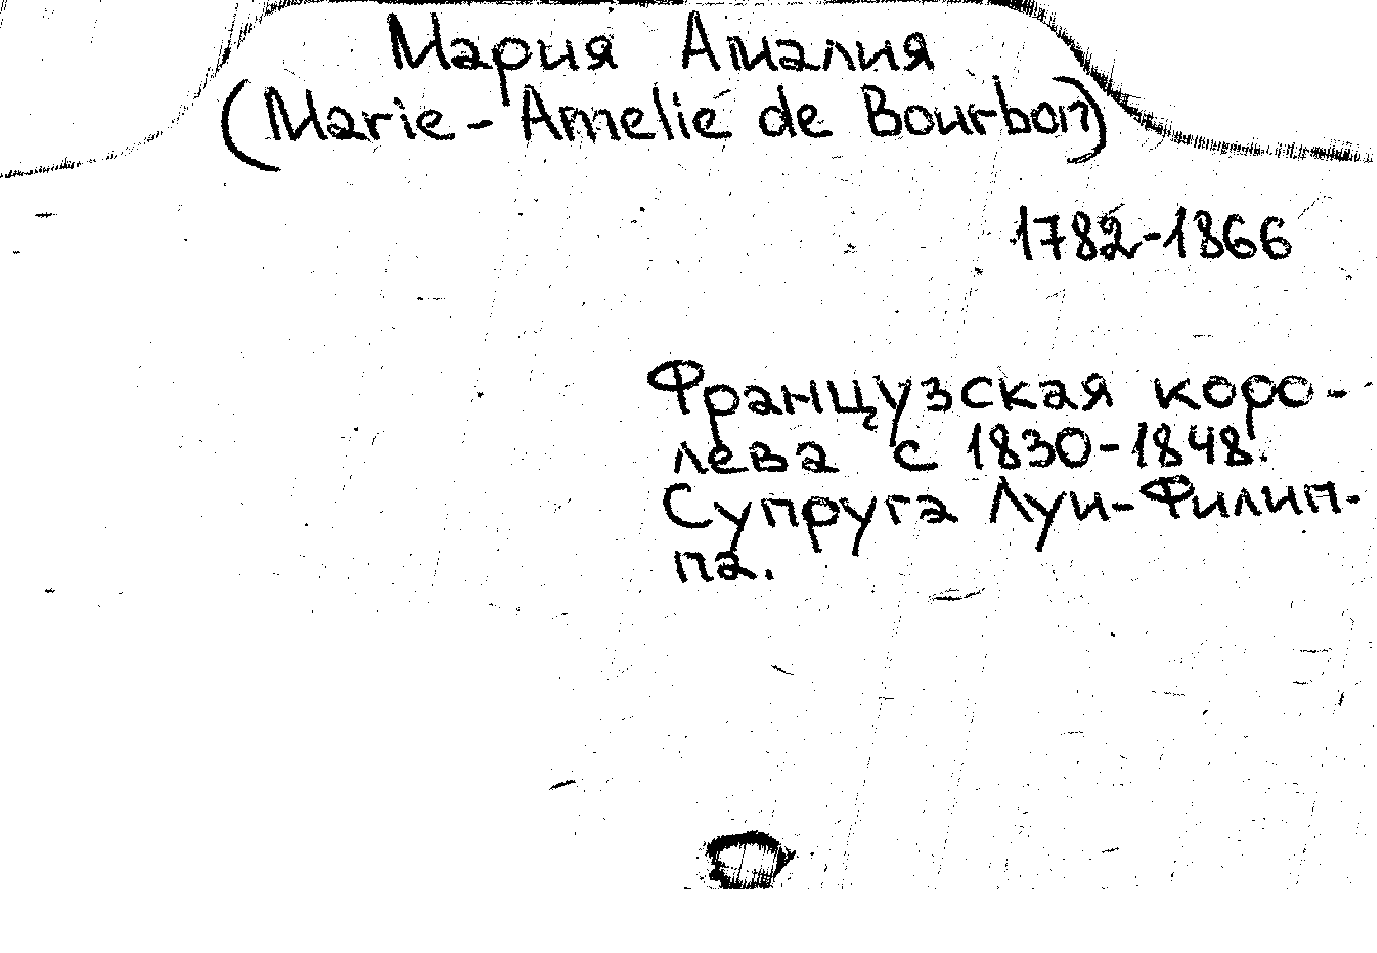 Мария Амалия
(Marie-Amelie de Bourbon)
1782-1866
Французская коро-
лева с 1830-1848.
Супруга Луи-Филип-
па.